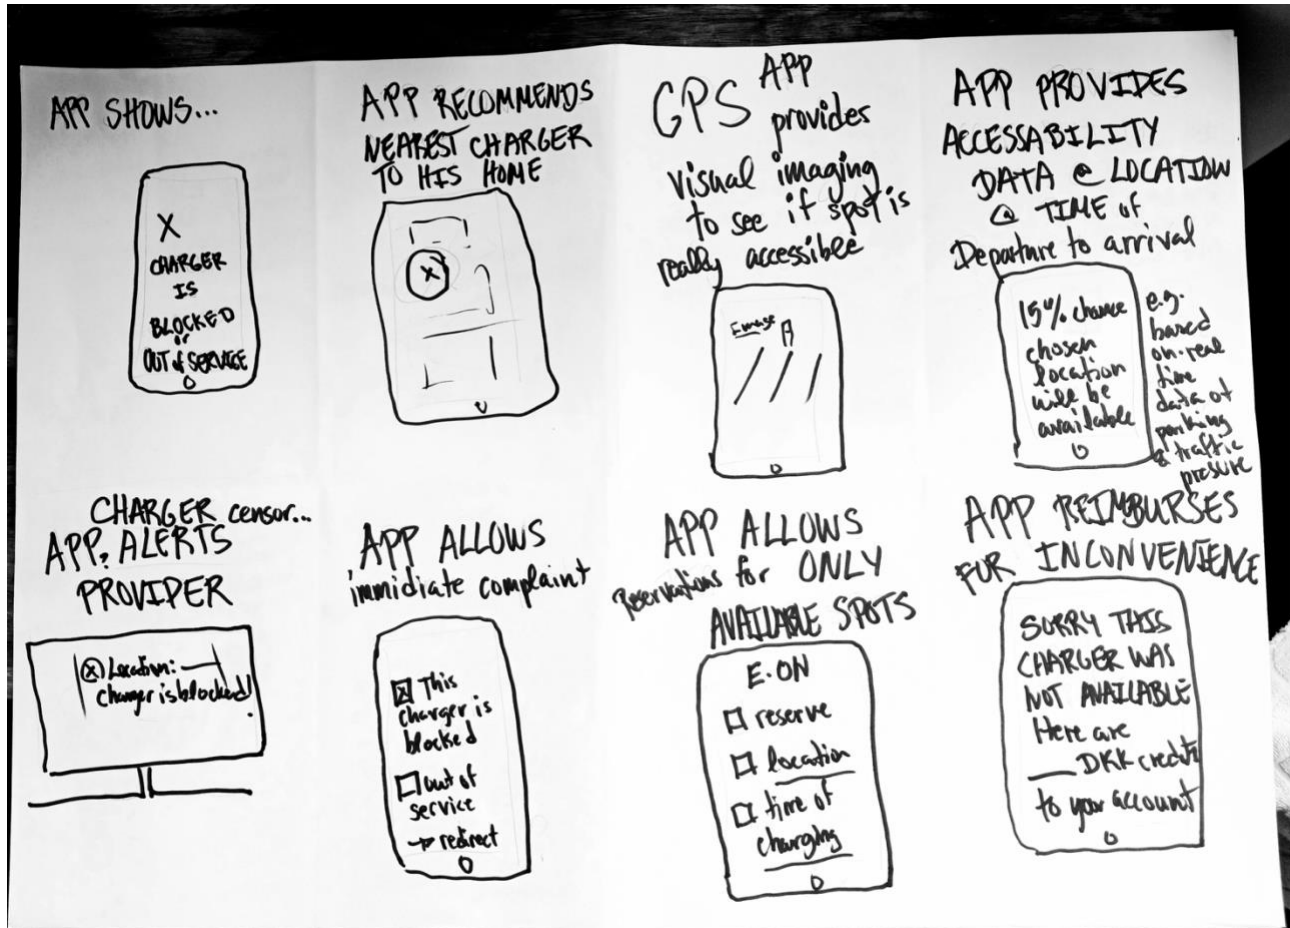 APP SHOWS...
X
CHARGER
IS
BLOCKED
or
OUT of SERVICE
APP RECOMMENDS
NEAREST CHARGER
TO HIS HOME
X
GPS APP
provides
visual imaging
to see if spot is
really accessible
APP PROVIDES
ACCESSABILITY
DATA @ LOCATION
@ TIME of
Departure to arrival
15% chance
chosen
location
will be
available
e.g.
based
on real
time
data of
parking
& traffic
presure
CHARGER censor...
APP. ALERTS
PROVIDER
(X) Location:
charger is blocked!
APP ALLOWS
immidiate complaint
This
charger is
blocked
out of
service
→ redirect
APP ALLOWS
Reservations for ONLY
AVAILABLE SPOTS
E.ON
reserve
location
time of
charging
APP REIMBURSES
FOR INCONVENIENCE
SORRY THIS
CHARGER WAS
NOT AVAILABLE
Here are
___ DKK credits
to your account